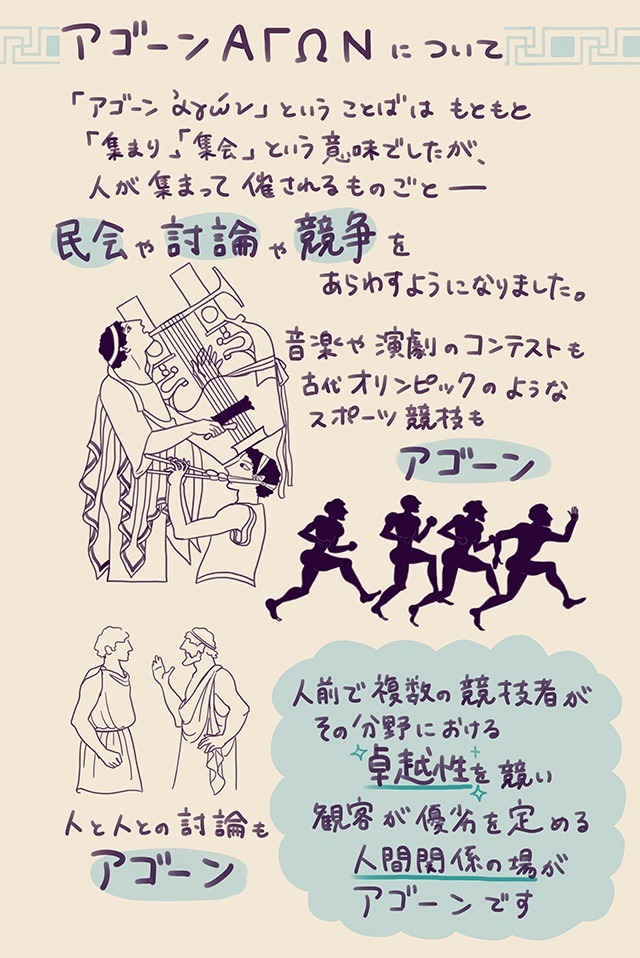 アゴーン ΑΓΩΝ について
「アゴーン ἀγών」ということばは もともと
「集まり」「集会」という意味でしたが、
人が集まって催されるものごと—
民会や討論や競争を
あらわすようになりました。
音楽や演劇のコンテストも
古代オリンピックのような
スポーツ競技も
アゴーン
人と人との討論も
アゴーン
人前で複数の競技者が
その分野における
卓越性を競い
観客が優劣を定める
人間関係の場が
アゴーンです